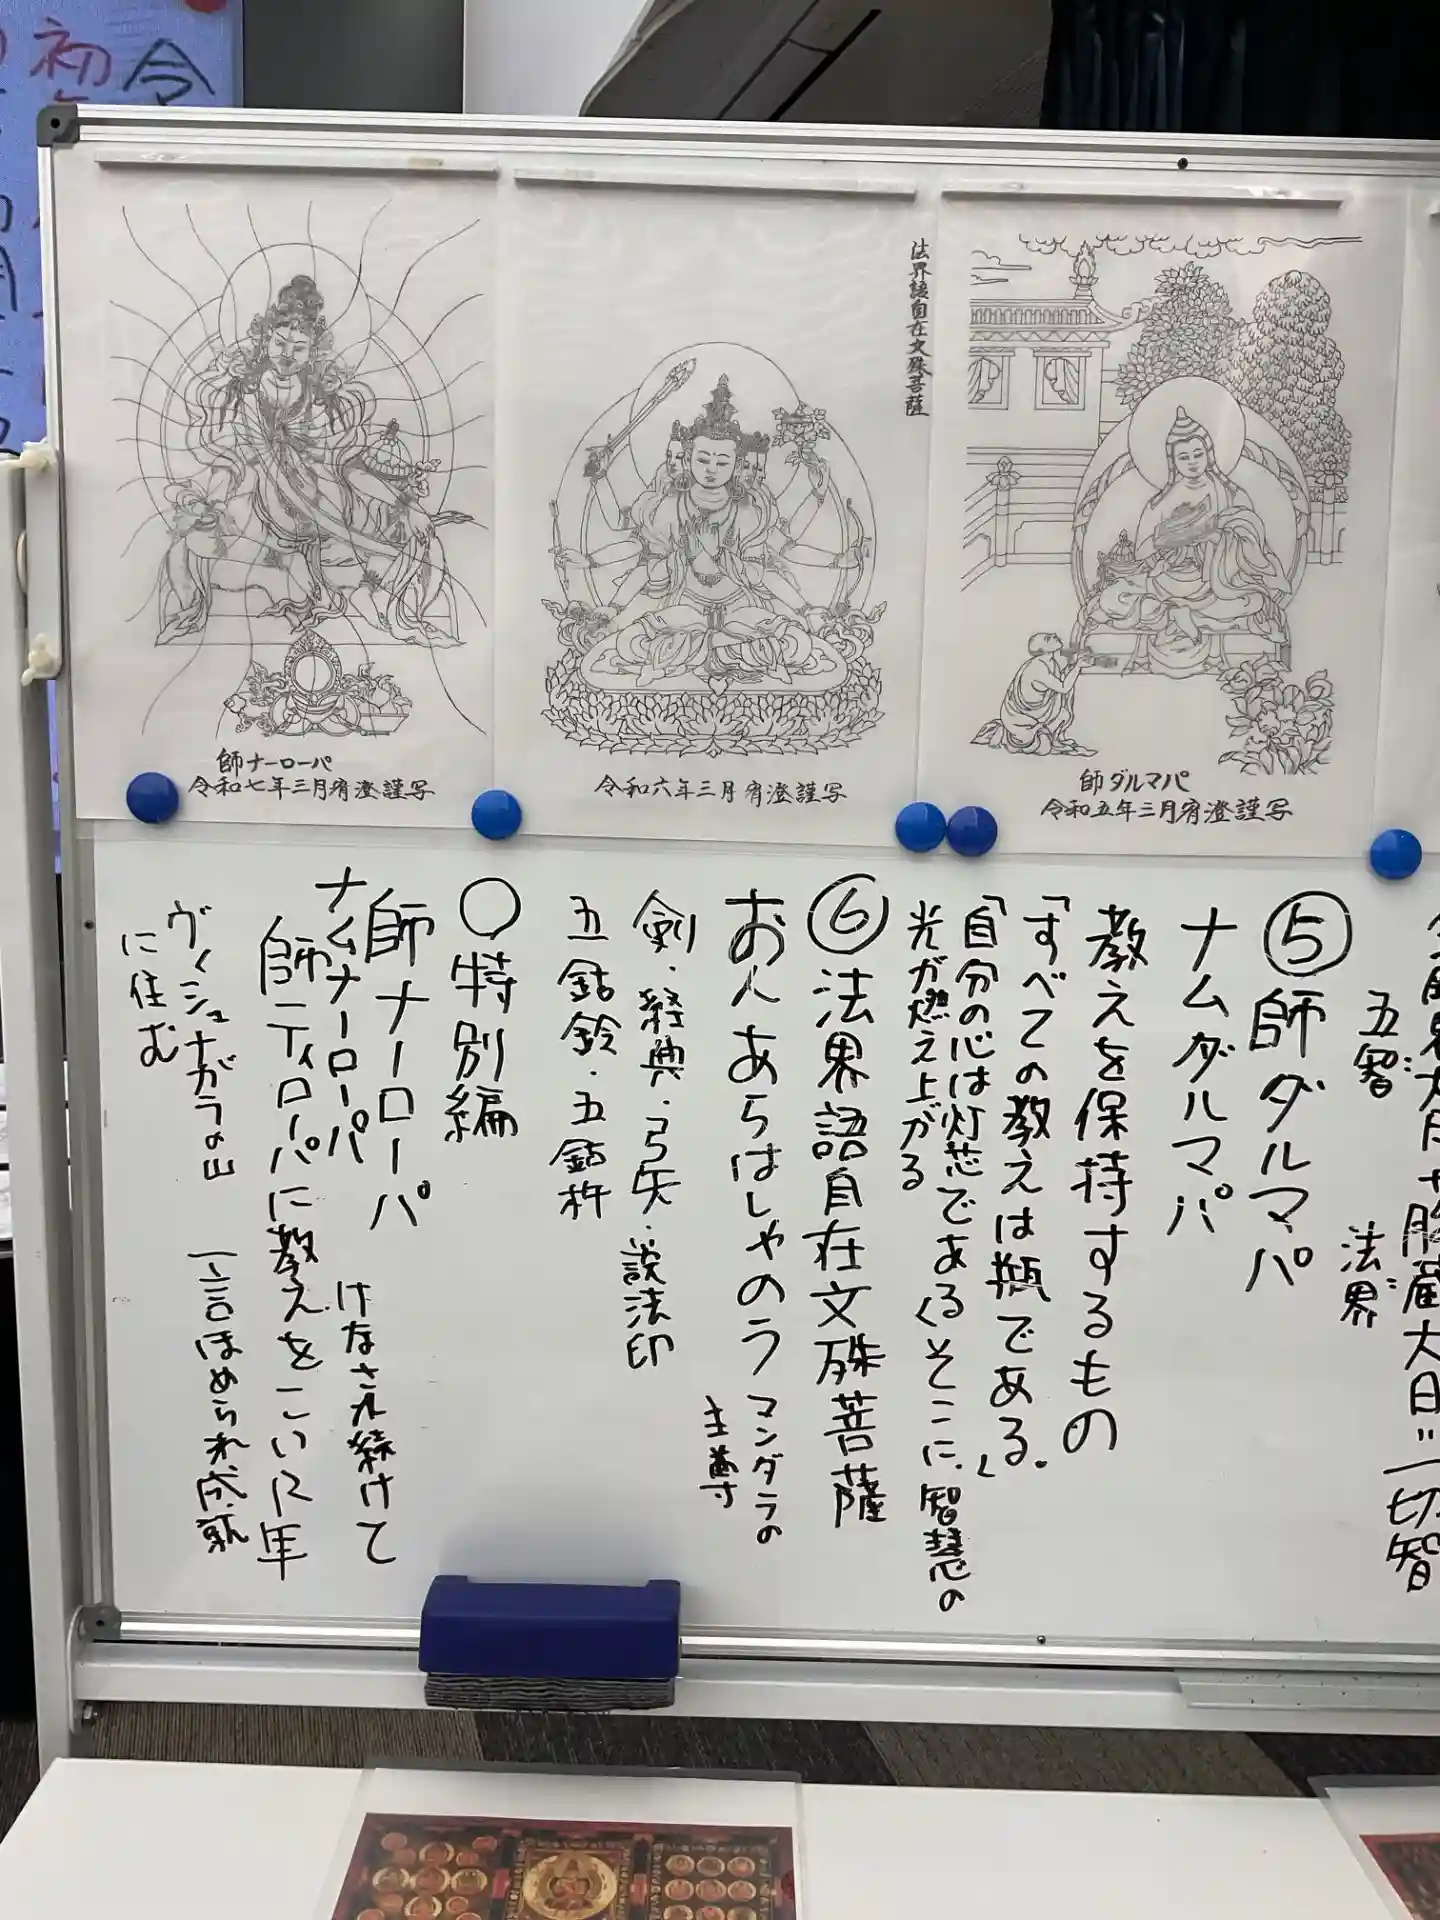 令
初
師ナーローパ
令和七年三月宥澄謹写
法界語自在文殊菩薩
令和六年三月宥澄謹写
師ダルマパ
令和五年三月宥澄謹写
五智
法界
大日＝一切智
⑤師ダルマパ
ナムダルマパ
教えを保持するもの
「すべての教えは瓶である。」
「自分の心は灯芯である」そこに、智慧の
光が燃え上がる
⑥法界語自在文殊菩薩
おんあらはしゃのう マンダラの
主尊
剣・経典・弓矢・説法印
五鈷鈴・五鈷杵
○特別編
師ナーローパ
ナムナーローパ けなされ続けて
師ティローパに教えをこい12年
ヴィシュナガラの山 一言ほめられ、成就
に住む